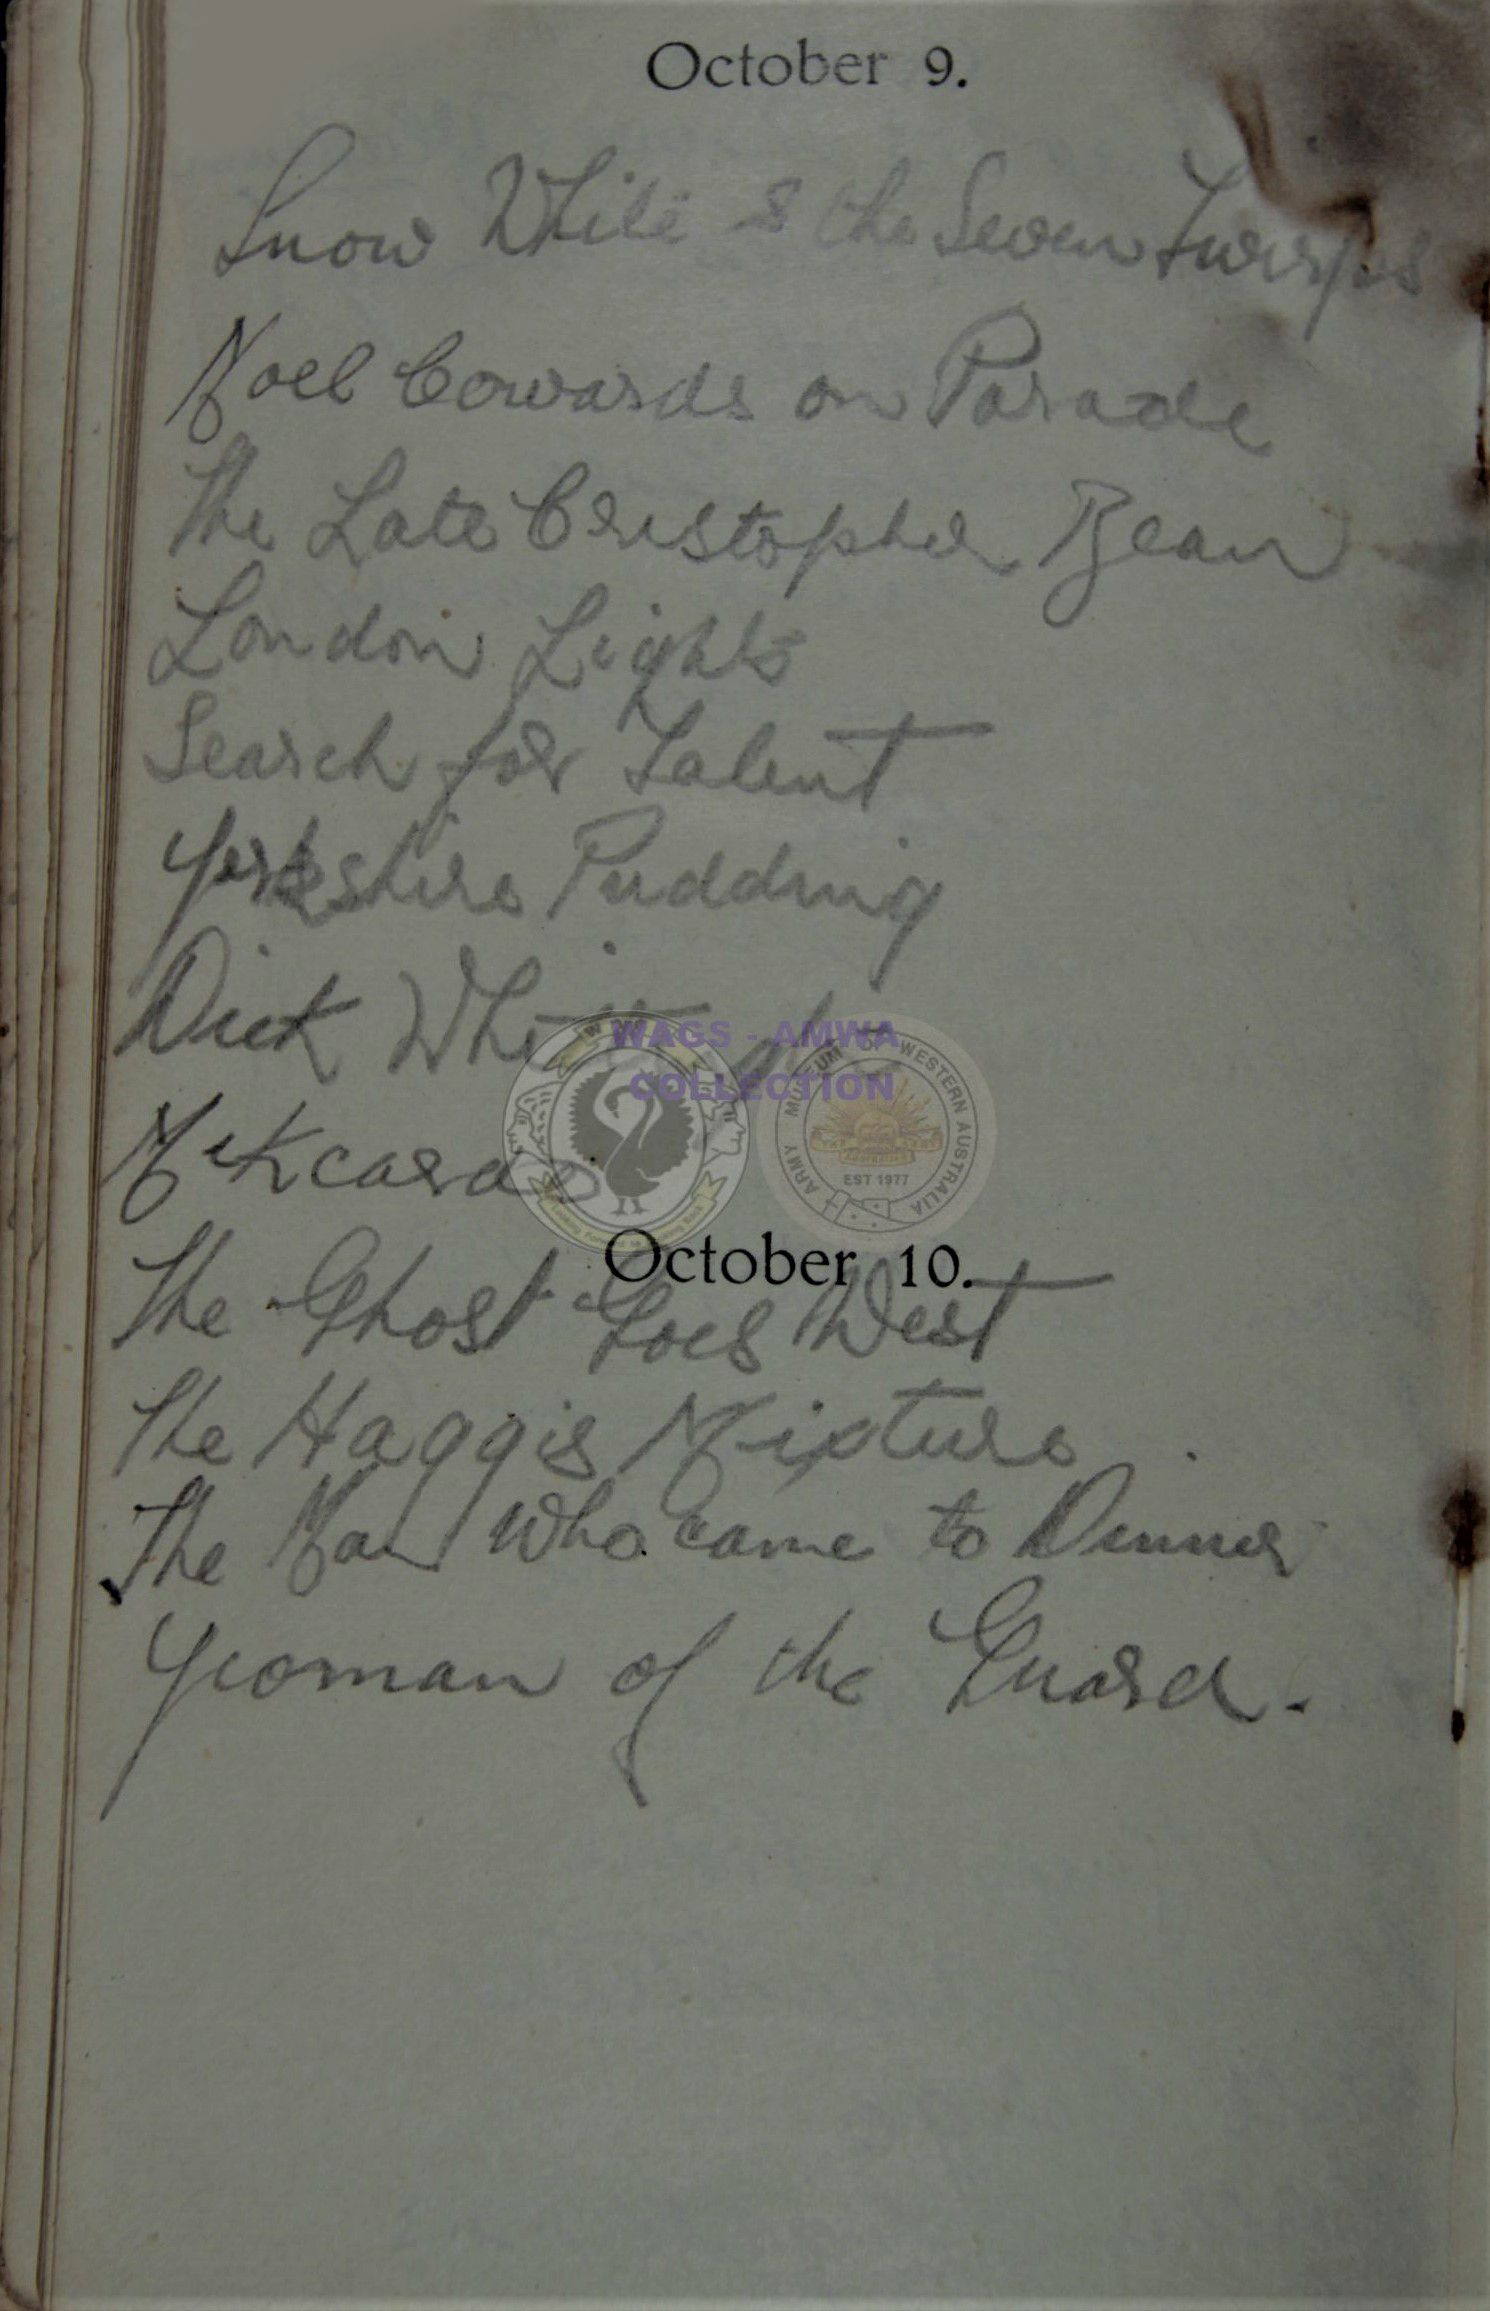 October 9.
Snow White & the Seven Twirps
Noel Cowards on Parade
The Late Cristopher Bean
London Lights
Search for Talent
Yorkshire Pudding
Dick
WAGS - AMWA
COLLECTION
MUSEUM OF WESTERN AUSTRALIA
ARMY
EST 1977
October 10.
The Ghost Goes West
The Haggis Mixture
The Man Who Came to Dinner
Yeoman of the Guard.